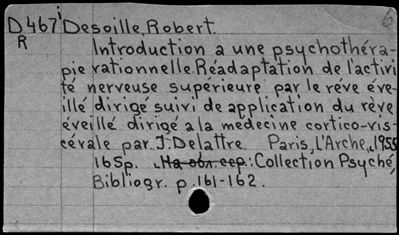 6
D467i Desoille, Robert.
R Introduction a une psychothéra-
pie rationnelle. Réadaptation de l'activi
té nerveuse supérieure par le rêve éve-
illé dirigé suivi de application du rêve
éveillé dirigé a la médecine cortico-vis-
cérale par J. Delattre. Paris, L'Arche, 1955
165p. На обл. сер.: Collection Psyché,
Bibliogr. p. 161-162.